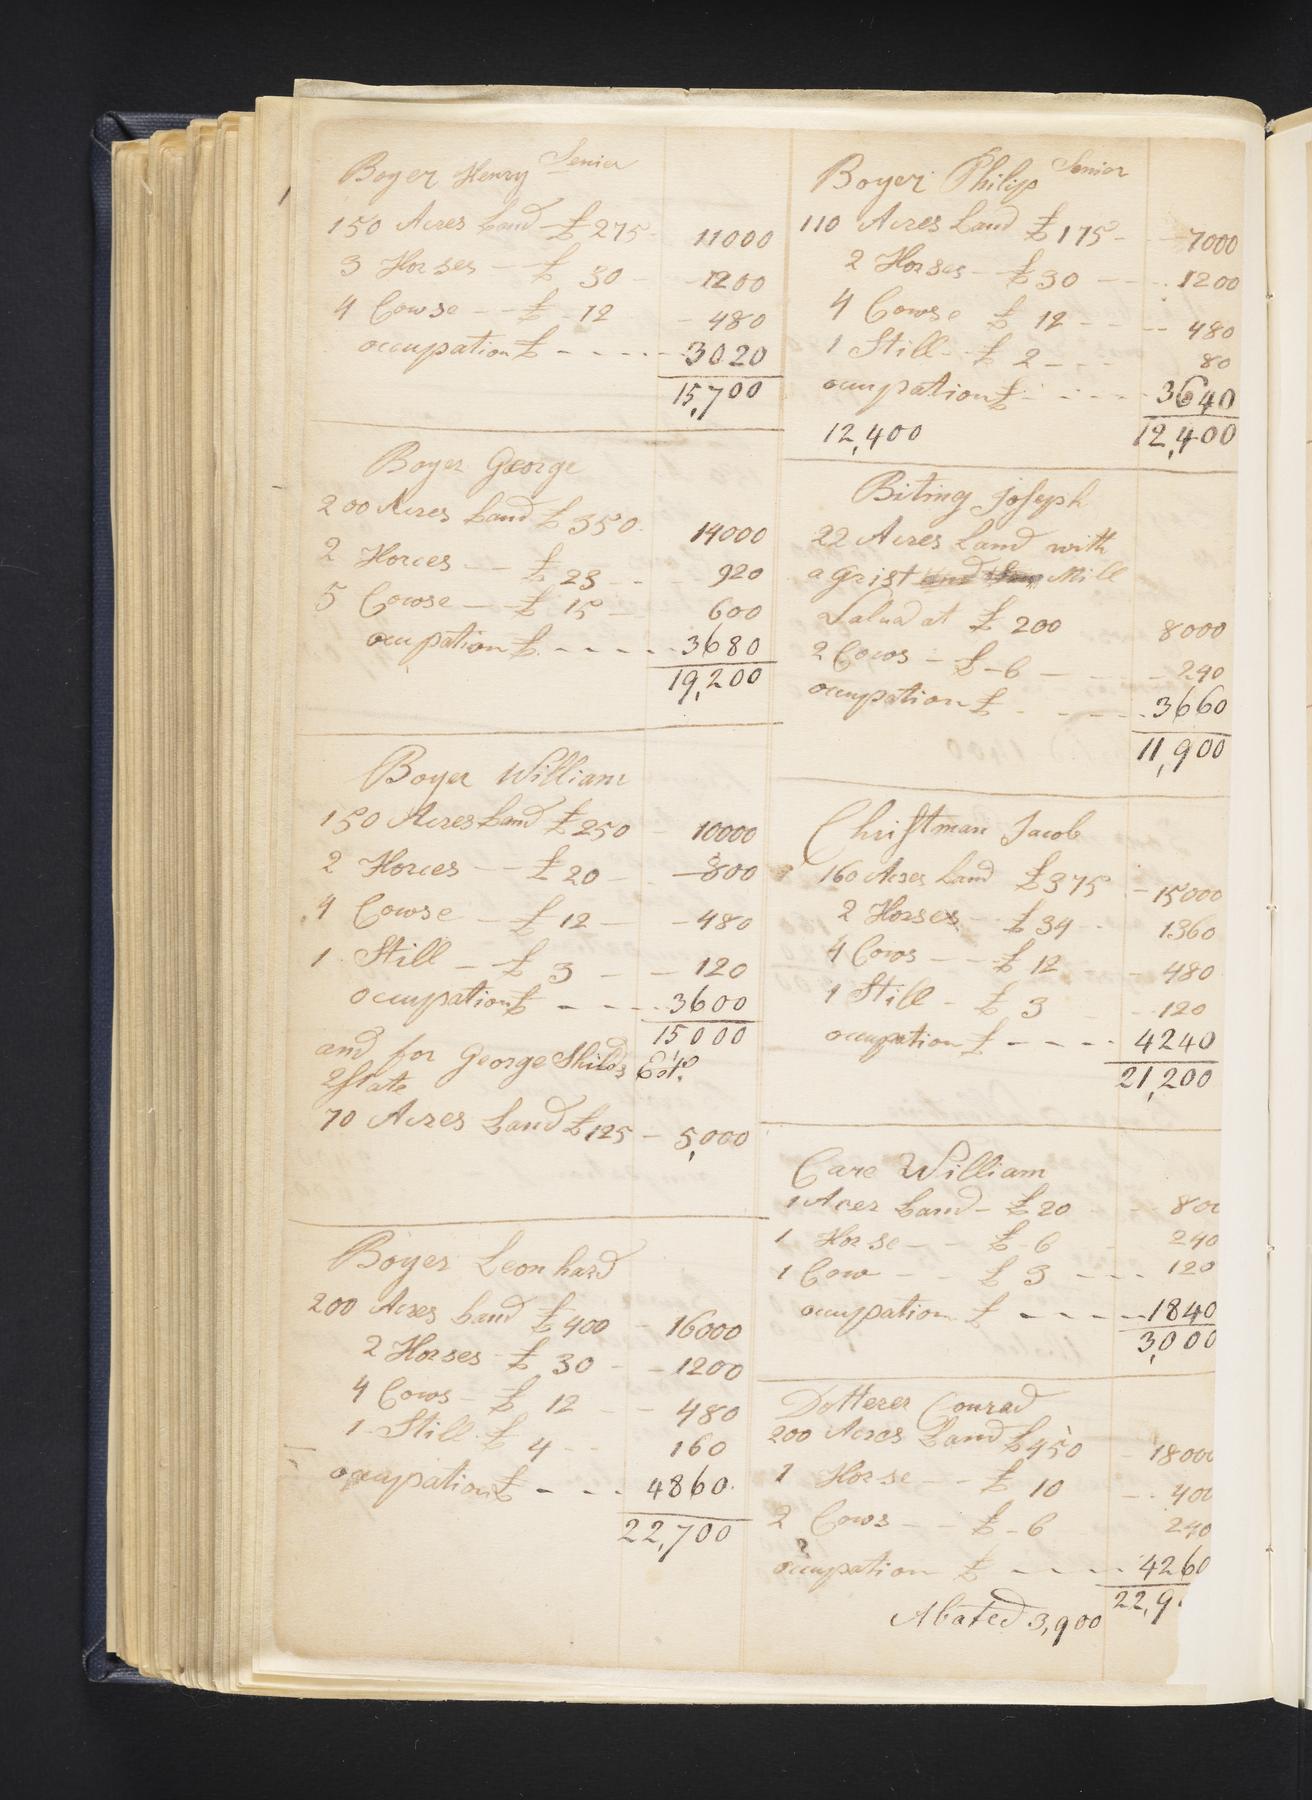 Boyer Henry Senior
150 Acres Land £ 275 - 11000
3 Horses - £ 30 - 1200
4 Cowse - £ 12 - 480
occupation £ - - - - 3020
15,700
Boyer George
200 Acres Land £ 350 14000
2 Horces - £ 23 - - 920
5 Cowse - £ 15 - 600
ocupation £ - - - - 3680
19,200
Boyer William
150 Acres Land £ 250 - 10000
2 Horces - £ 20 - - 800
4 Cowse - £ 12 - - 480
1 Still - £ 3 - - 120
occupation £ - - - 3600
15000
and for George Shilds Est.
Estate
70 Acres Land £ 125 - 5,000
Boyer Leonhard
200 Acres Land £ 400 - 16000
2 Horses - £ 30 - - 1200
4 Cows - £ 12 - - 480
1 Still £ 4 - - 160
occupation £ - - - 4860
22,700
Boyer Philip Senior
110 Acres Land £ 175 - 7000
2 Horses - £ 30 - - 1200
4 Cowse £ 12 - - - 480
1 Still - £ 2 - - - 80
occupation £ - - - - 3640
12,400 12,400
Biting Joseph
22 Acres Land with
a Grist Mill
Valud at £ 200 8000
2 Cows - £ 6 - - 240
occupation £ - - - 3660
11,900
Christman Jacob
160 Acres Land £ 375 - 15000
2 Horses - £ 34 - 1360
4 Cows - - £ 12 - 480
1 Still - £ 3 - 120
occupation £ - - - - 4240
21,200
Care William
1 Acer Land - £ 20 - 800
1 Horse - - £ 6 240
1 Cow - - £ 3 - - - 120
occupation £ - - - - 1840
3,000
Dotterer Conrad
200 Acres Land £ 450 - 18000
1 Horse - - £ 10 - - 400
2 Cows - - £ 6 240
occupation £ - - - - 4260
22,9
Abated 3,900